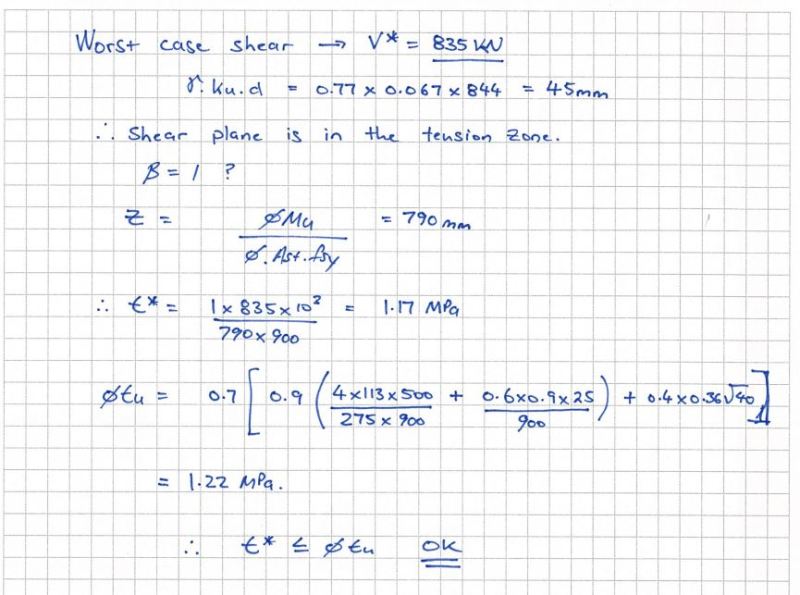 Worst case shear → V* = 835 kN
γ.ku.d = 0.77 x 0.067 x 844 = 45mm
∴ Shear plane is in the tension zone.
β = 1 ?
Z = ØMu / Ø.Ast.fsy = 790 mm
∴ t* = 1 x 835 x 10³ / 790 x 900 = 1.17 MPa
Øtu = 0.7 [ 0.9 ( 4 x 113 x 500 / 275 x 900 + 0.6 x 0.9 x 25 / 900 ) + 0.4 x 0.36√40 ]
= 1.22 MPa.
∴ t* ≤ Øtu OK